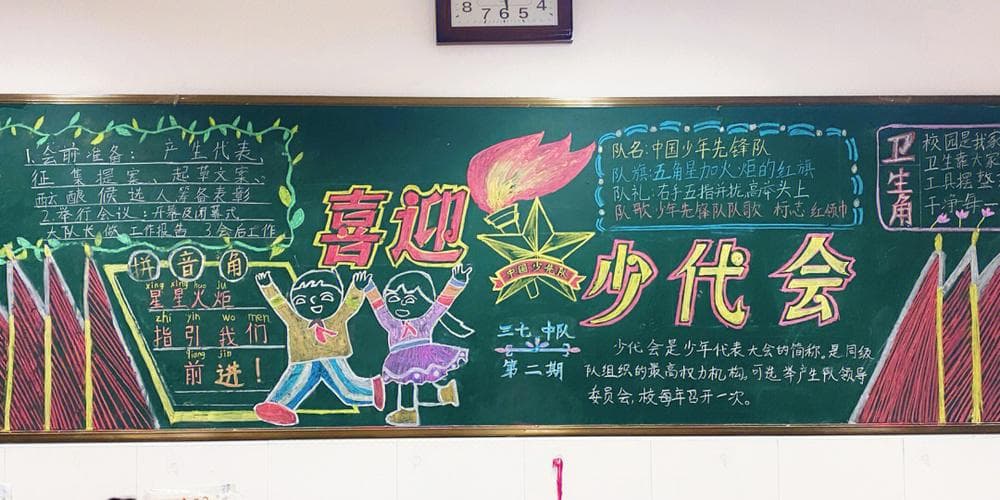 8 7 6 5 4
1.会前准备：产生代表、
征集提案、起草文案、
酝酿候选人筹备表彰
2.举行会议：开幕及闭幕式
大队长做工作报告 3会后工作
拼音角
xīng xing huǒ jù
星星火炬
zhǐ yǐn wǒ men
指引我们
qián jìn
前进！
喜迎
少代会
中国少先队
三七中队
第二期
队名：中国少年先锋队
队旗：五角星加火炬的红旗
队礼：右手五指并拢，高举头上
队歌：少年先锋队队歌 标志 红领巾
少代会是少年代表大会的简称。是同级
队组织的最高权力机构。可选举产生队领导
委员会，校每年召开一次。
卫生角
校园是我家
卫生靠大家
工具摆整
干净每一